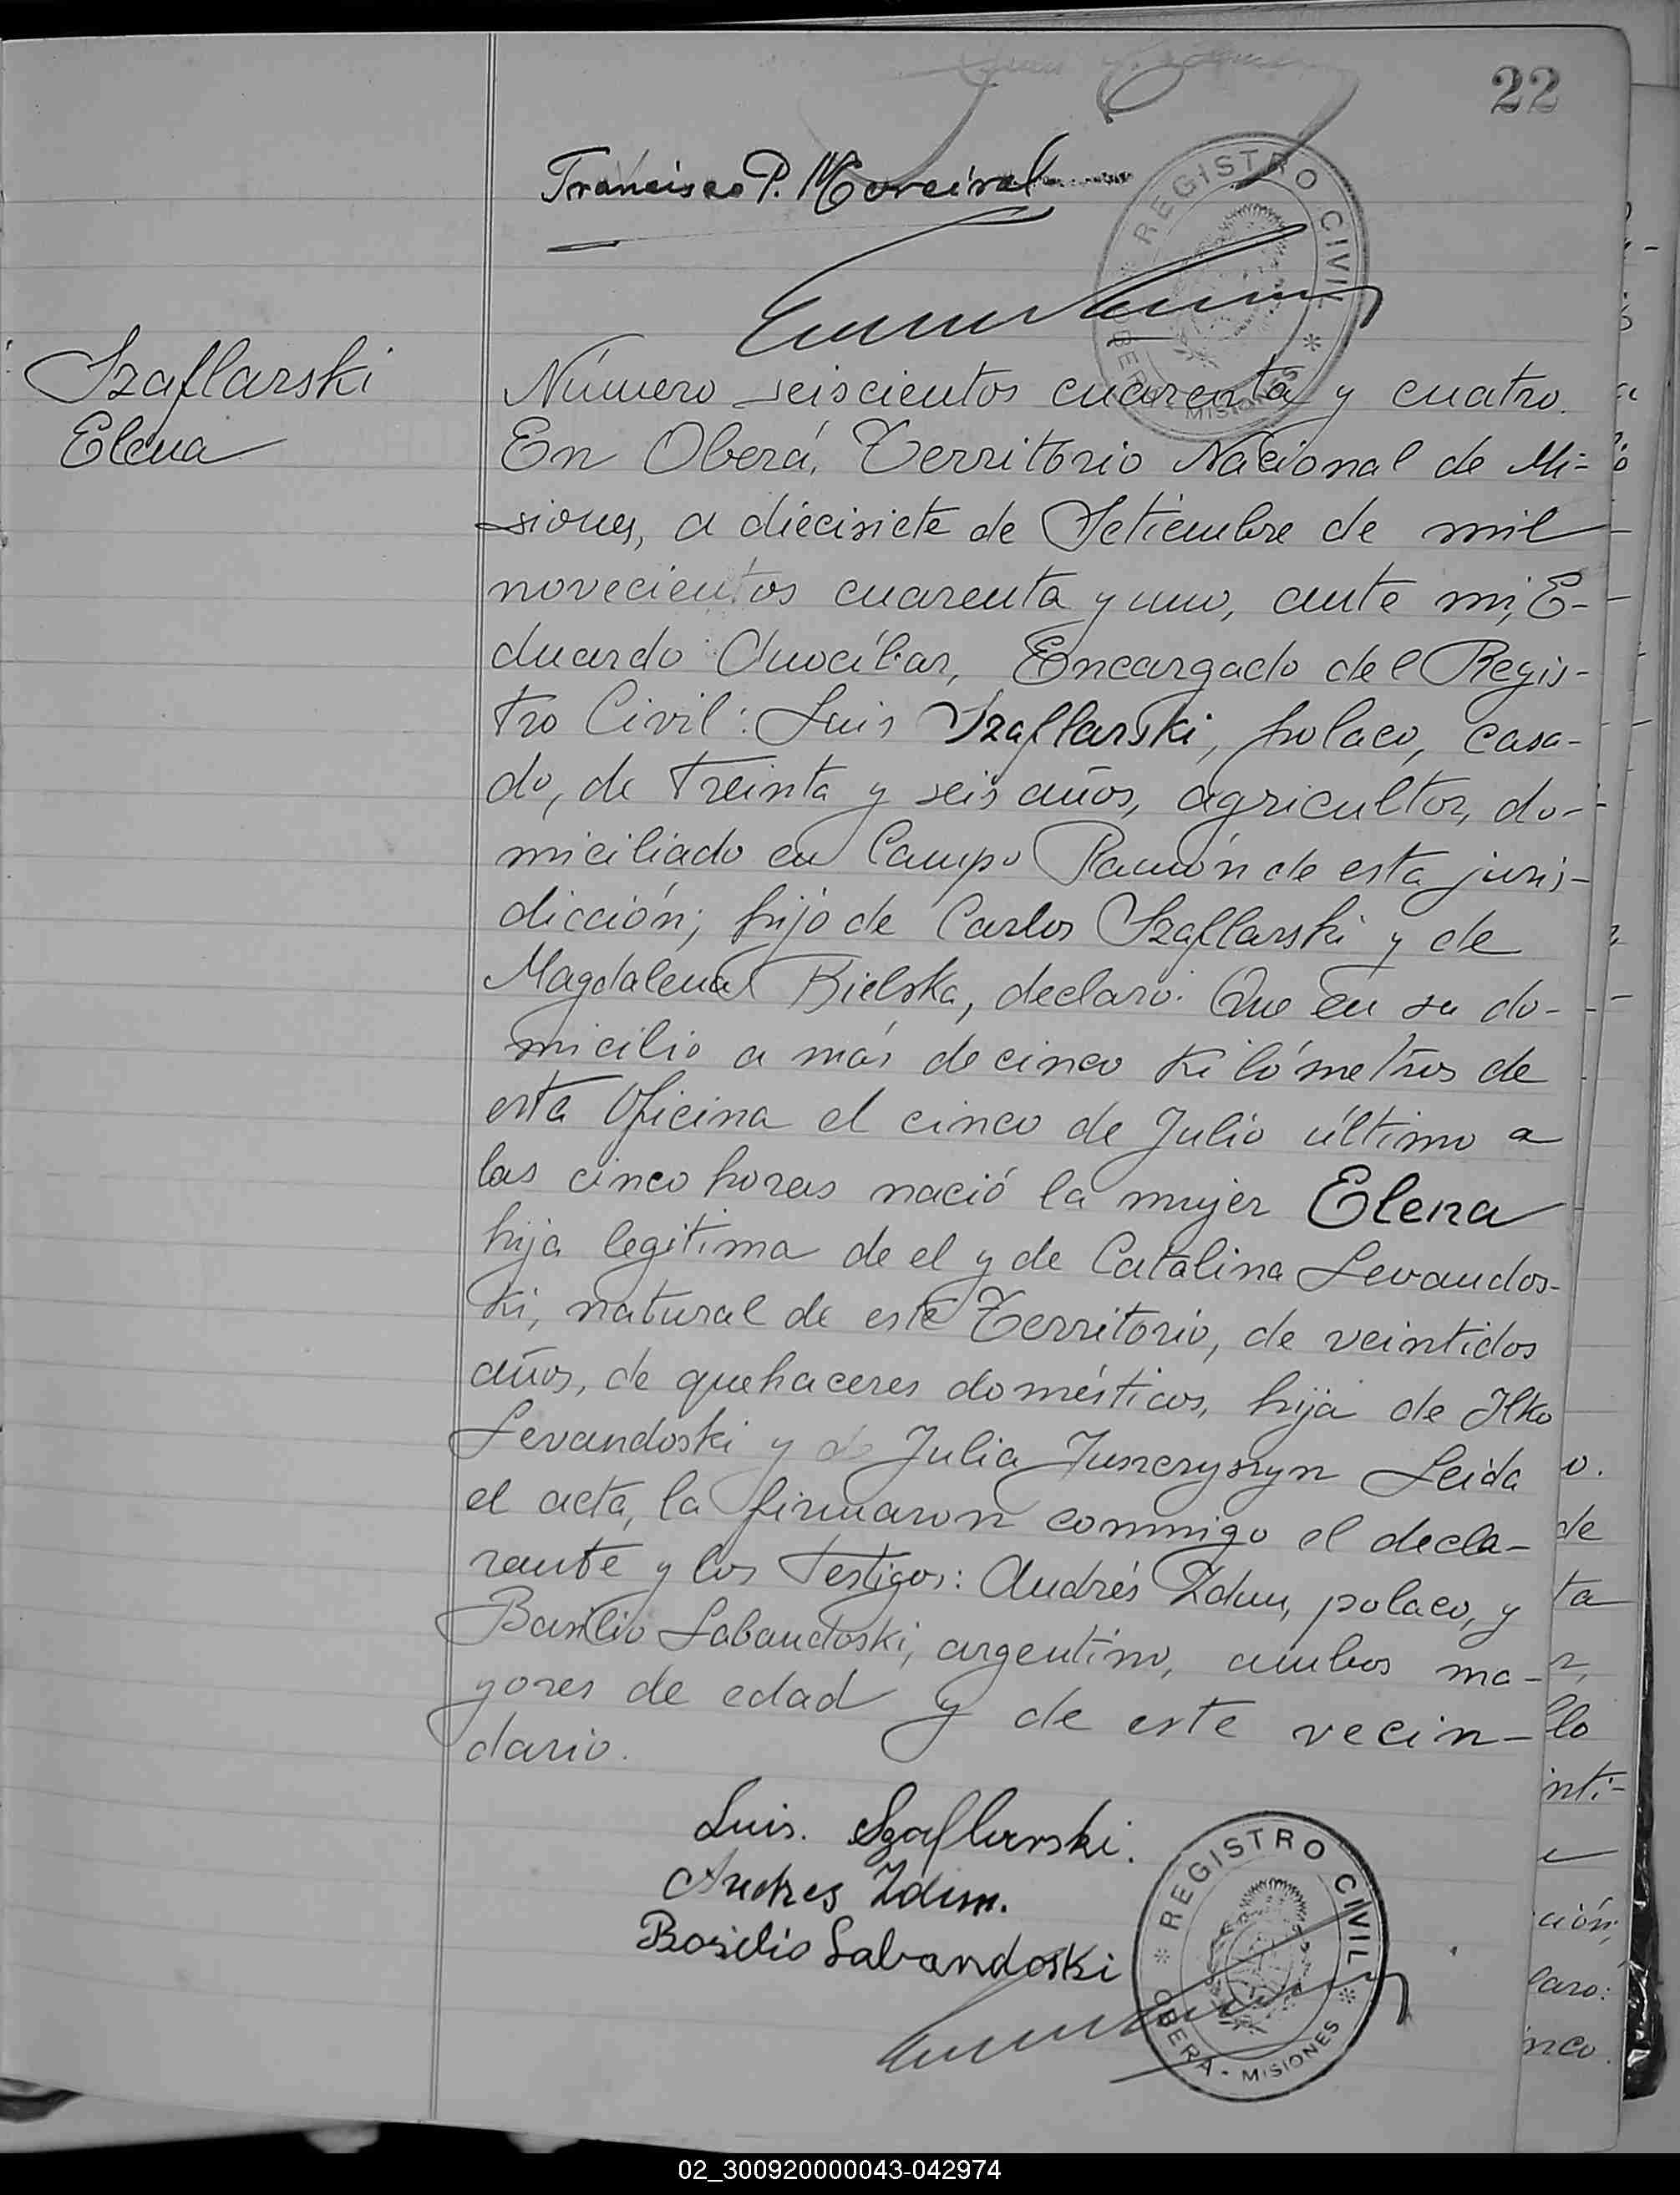 22
Francisco P.
REGISTRO CIVIL
OBERÁ - MISIONES
Szaflarski
Elena
Número seiscientos cuarenta y cuatro.
En Oberá, Territorio Nacional de Mi-
siones, a diecisiete de Setiembre de mil
novecientos cuarenta y uno, ante mi, E-
duardo Anocíbar, Encargado del Regis-
tro Civil: Luis Szaflarski, polaco, casa-
do, de treinta y seis años, agricultor, do-
miciliado en Campo Ramón de esta juris-
dicción; hijo de Carlos Szaflarski y de
Magdalena Bielska, declaró: Que en su do-
micilio a más de cinco kilómetros de
esta Oficina el cinco de Julio último a
las cinco horas nació la mujer Elena
hija legitima de el y de Catalina Levandos-
ki, natural de este Territorio, de veintidos
años, de quehaceres domésticos, hija de Ilko
Levandoski y de Julia Juncryszyn Leida
el acta, la firmaron conmigo el decla-
rante y los testigos: Andrés Zdun, polaco, y
Basilio Labandoski, argentino, ambos ma-
yores de edad y de este vecin-
dario.
Luis. Szaflarski.
Andres Zdun.
Basilio Labandoski
REGISTRO CIVIL
OBERÁ - MISIONES
02_300920000043-042974